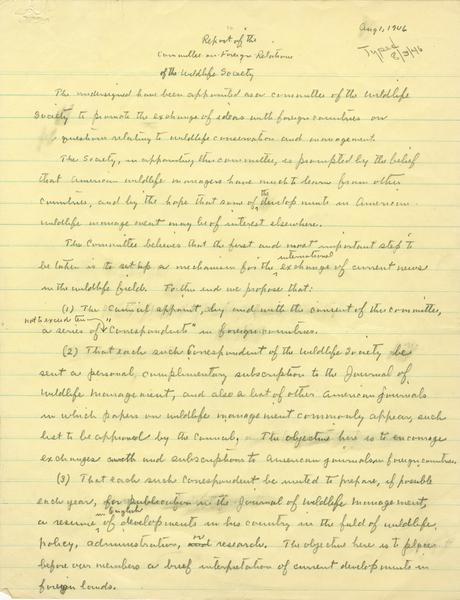 Aug 1, 1946
Typed
8/3/46
Report of the
Committee on Foreign Relations
of the Wildlife Society
The undersigned have been appointed as a committee of the Wildlife
Society to promote the exchange of ideas with foreign countries on
questions relating to wildlife conservation and management.
The Society, in appointing this committee, is prompted by the belief
that American wildlife managers have much to learn from other
countries, and by the hope that some of the developments in American
wildlife management may be of interest elsewhere.
The Committee believes that the first and most important step to
be taken is to set up a mechanism for the international exchange of current news
in the wildlife field. To this end we propose that:
(1) The Council appoint, by and with the consent of this committee,
not to exceed ten
a series of "Correspondents" in foreign countries.
(2) That each such Correspondent of the Wildlife Society be
sent a personal, complimentary subscription to the Journal of
Wildlife Management, and also a list of other American journals
in which papers on wildlife management commonly appear, such
list to be approved by the Council. The objective here is to encourage
exchanges with and subscriptions to American journals in foreign countries.
(3) That each such correspondent be invited to prepare, if possible
each year, for publication in the Journal of Wildlife Management,
a resume in English of developments in his country in the field of wildlife
policy, administration, or research. The objective here is to place
before our members a brief interpretation of current developments in
foreign lands.